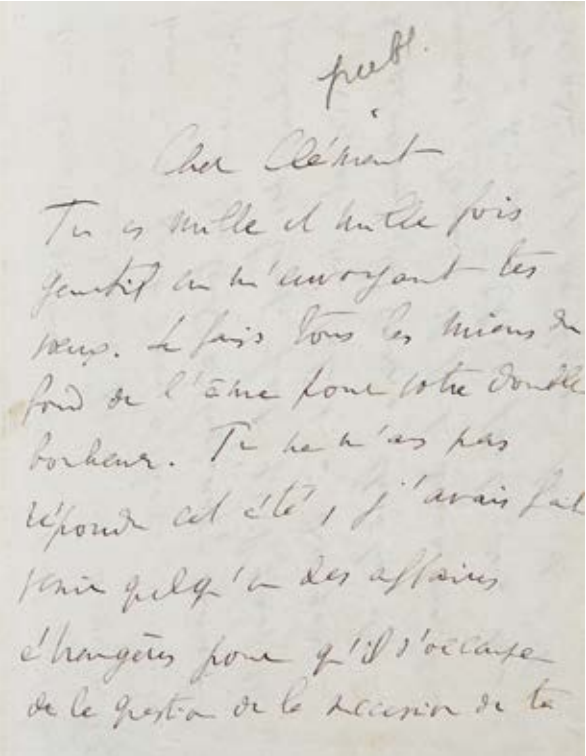 publ.
Cher Clément
Tu es mille et mille fois
gentil en m'envoyant tes
vœux. Je fais tous les miens du
fond de l'âme pour votre double
bonheur. Tu ne m'as pas
répondu cet été, j'avais fait
venir quelqu'un des affaires
étrangères pour qu'il s'occupe
de la question de la succession de ta